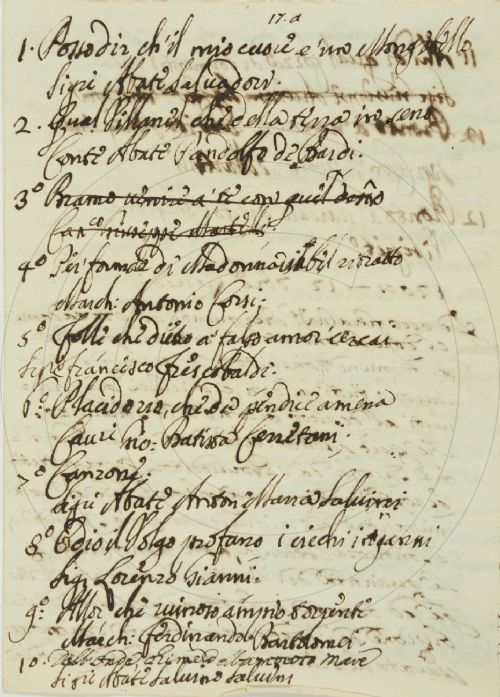 17.a
1. Posso dir ch'il mio cuore è un Mongibello
Sig.re Abate Salvadori.
2. Qual Villanel che della terra in seno
Conte Abate Pandolfo de Bardi.
3.° Bramo venire a te con quel
Can.co Giuseppe Martelli
4.° Per formar di Madonna il bel ritratto
March: Antonio Corsi.
5.° Folli che dietro a falso amor
Sig.re Francesco Frescobaldi.
6.° Placido rio, che da pendice amena
Cav.re Batista Cerretani.
7.° Canzone
Sig.re Abate Anton Maria Salvini
8.° Odio il Volgo profano i ciechi inganni
Sig. Lorenzo Gianni.
9.° Allor che ruinoso ampio torrente
March: Ferdinando Bartolomei.
10 mare
Sig.re Abate Salvino Salvini